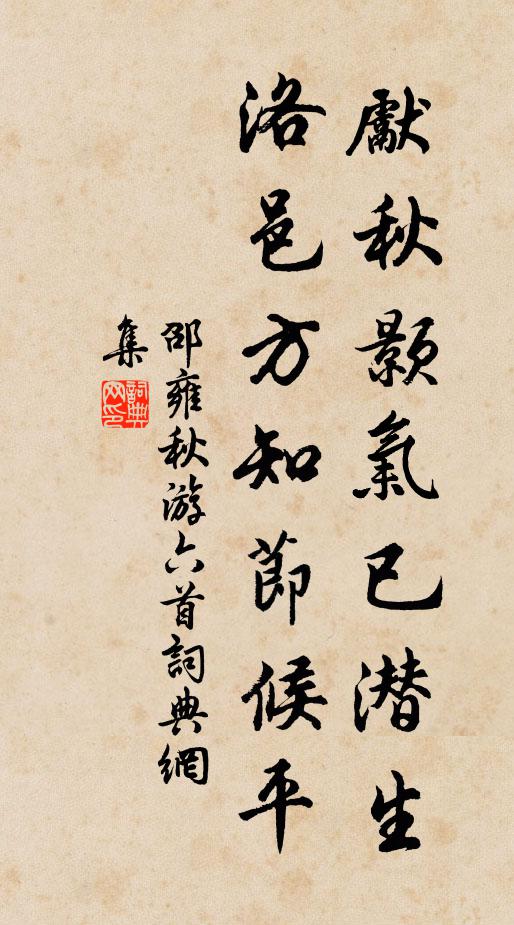 獻秋顥氣已潜生
洛邑方知節候平
邵雍秋游六首詞典網
集
詞典网印